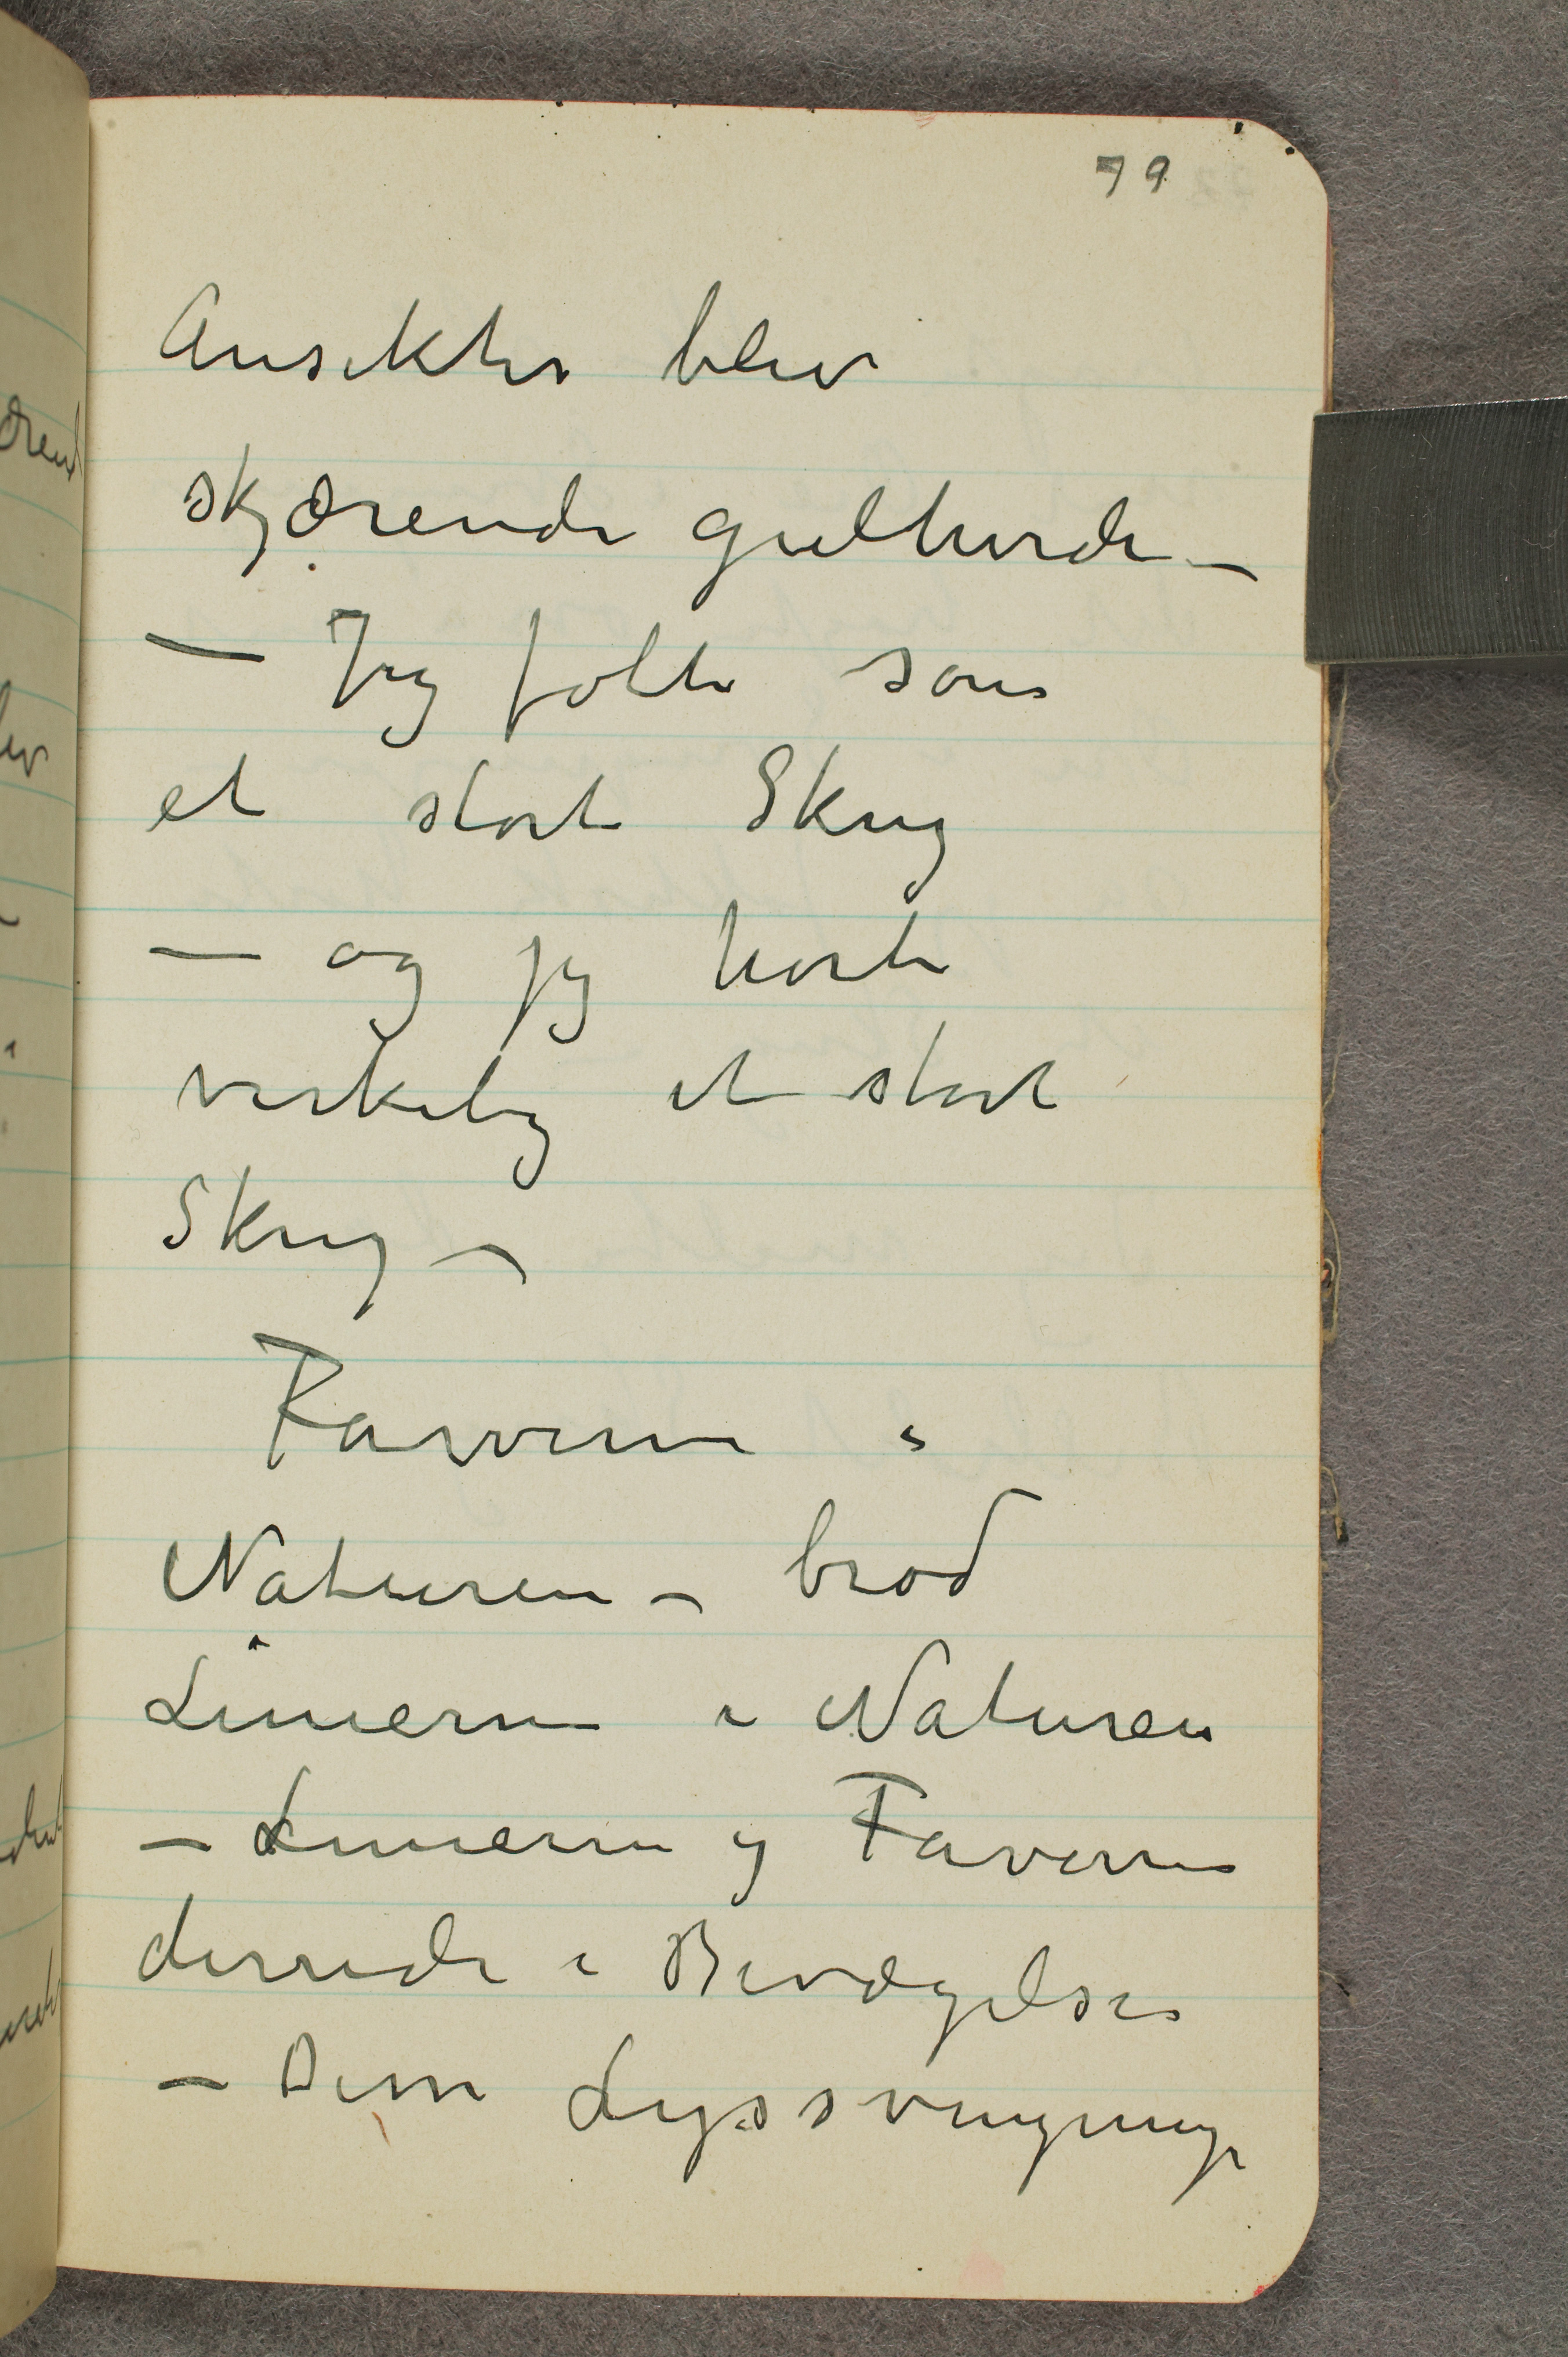 79
Ansikter blev
skjærende gulhvide –
– Jeg følte som
et stort Skrig
– og jeg hørte
virkelig et stort
Skrig –
Farverne i
Naturen – brød
Linierne i Naturen
– Linierne og Farverne
dirrede i Bevægelse
– Disse Lyssvingninger